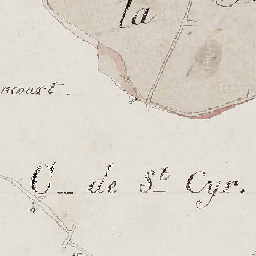 la
ncourt.
C_ de St Cyr.